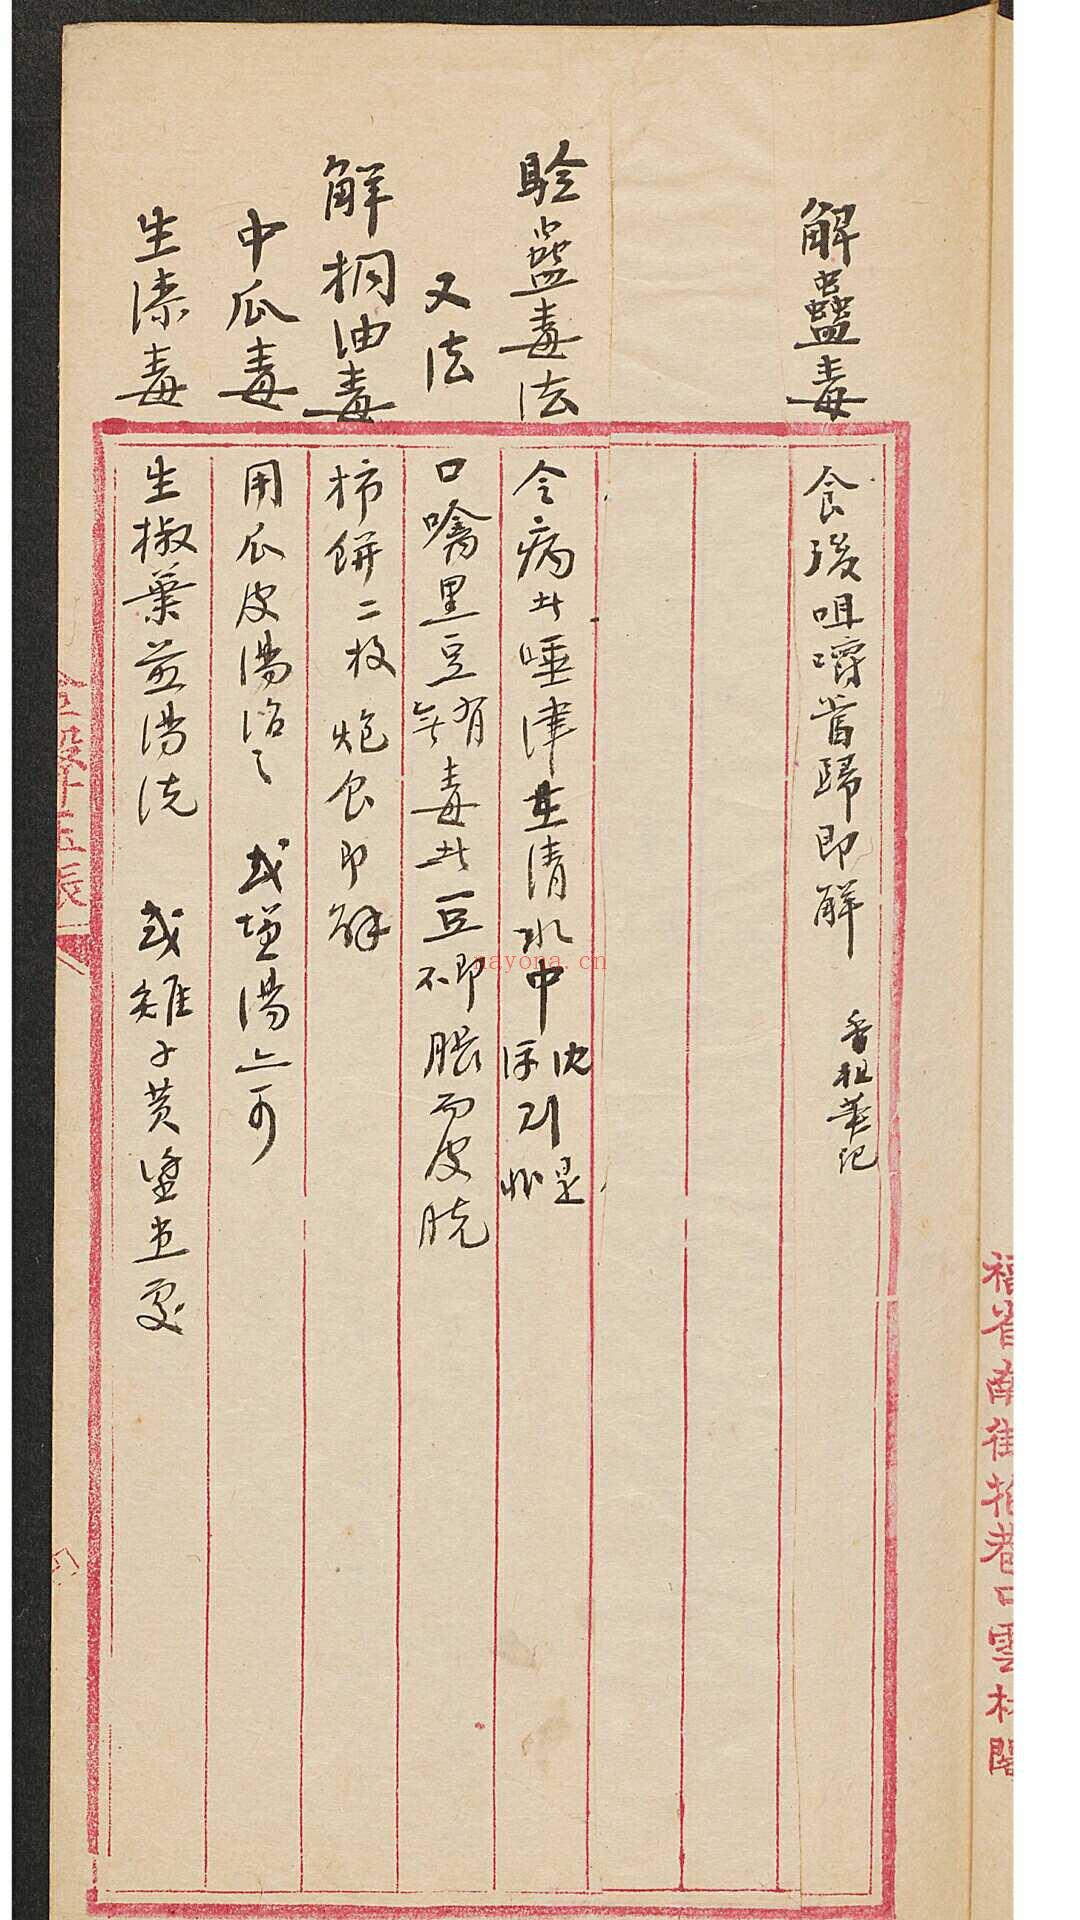 解蠱毒
食後咀嚼當歸即解 香祖筆記
驗蠱毒法
令病者唾津在清水中沈浮則是非
又法
口噙黑豆有無毒者豆不即脹而皮脫
解桐油毒
柿餅二枚炮食即解
中瓜毒
用瓜皮湯治之 或塩湯亦可
生漆毒
生椒葉煎湯洗 或雞子黄塗患處
福省南街花巷口雲林閣
nayona.cn